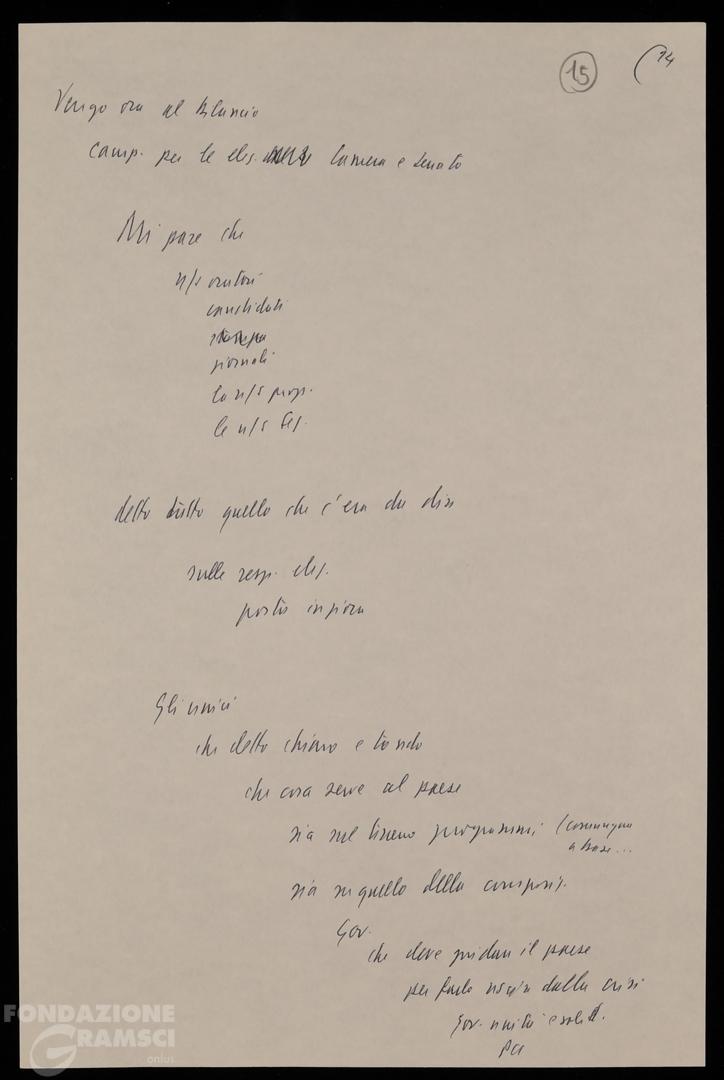 15
14
Vengo ora al bilancio
camp. per le elez. Camera e Senato
Mi pare che
n/s oratori
candidati
stampa
giornali
la n/s prop.
le n/s Sez.
detto tutto quello che c'era da dire
sulle resp. elez.
posta in gioco
Gli unici
che detto chiaro e tondo
che cosa serve al paese
sia sul terreno programm.
sia su quello della composiz.
Gov.
che deve guidare il paese
per farlo uscire dalla crisi
Gov. unità e solid.
PCI
FONDAZIONE
GRAMSCI
onlus